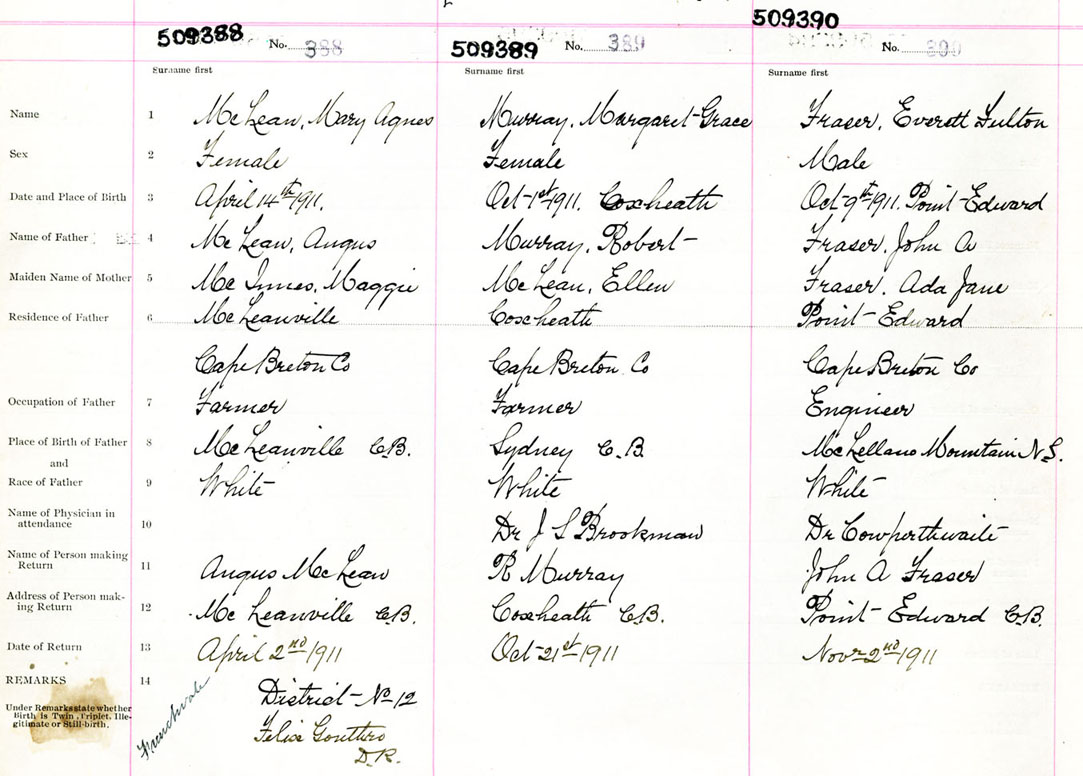 509388 No. 388
509389 No. 389
509390 No. 390
Surname first Surname first Surname first
Name 1 McLean, Mary Agnes Murray, Margaret-Grace Fraser, Everett Fulton
Sex 2 Female Female Male
Date and Place of Birth 3 April 14th 1911. Oct-1st 1911. Coxheath Oct-9th 1911. Point-Edward
Name of Father 4 McLean, Angus Murray, Robert- Fraser, John A
Maiden Name of Mother 5 McInnes, Maggie McLean, Ellen Fraser. Ada Jane
Residence of Father 6 McLeanville Coxheath Point-Edward
Cape Breton Co Cape Breton Co Cape Breton Co
Occupation of Father 7 Farmer Farmer Engineer
Place of Birth of Father 8 McLeanville C.B. Sydney C.B. McLellans Mountain N.S.
and
Race of Father 9 White White White
Name of Physician in
attendance 10 Dr J S Brookman Dr Cowperthwaite
Name of Person making
Return 11 Angus McLean R Murray John A Fraser
Address of Person mak-
ing Return 12 McLeanville C.B. Coxheath C.B. Point-Edward C.B.
Date of Return 13 April 2nd 1911 Oct-21st 1911 Novr 2nd 1911
REMARKS 14 District-No 12
Under Remarks state whether
Birth is Twin, Triplet, Ille-
gitimate or Still-birth.
Frenchvale
Felix Gouthro
D.R.